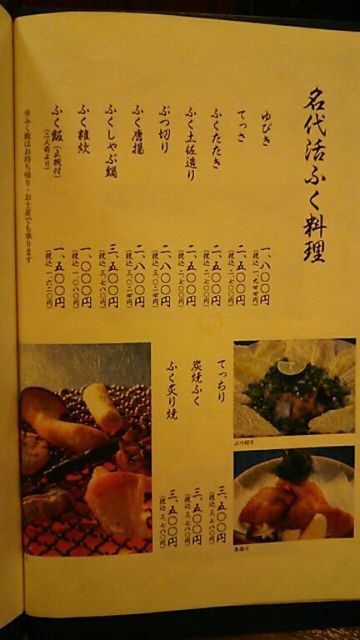 名代活ふく料理
ゆびき
一、八〇〇円
(税込 一、九四四円)
てっさ
二、五〇〇円
(税込 二、七〇〇円)
ふくたたき
二、五〇〇円
(税込 二、七〇〇円)
ふく土佐造り
二、五〇〇円
(税込 二、七〇〇円)
ぶつ切り
二、八〇〇円
(税込 三、〇二四円)
ふく唐揚
二、八〇〇円
(税込 三、〇二四円)
ふくしゃぶ鍋
三、五〇〇円
(税込 三、七八〇円)
ふく雑炊
一、〇〇〇円
(税込 一、〇八〇円)
ふく飯(止椀付)
(二人前より)
一、五〇〇円
(税込 一、六二〇円)
※ふく飯はお持ち帰り・お土産でも承ります
てっちり
三、五〇〇円
(税込 三、七八〇円)
炭焼ふく
三、五〇〇円
(税込 三、七八〇円)
ふく炙り焼
三、五〇〇円
(税込 三、七八〇円)
ぶつ切り
唐揚げ